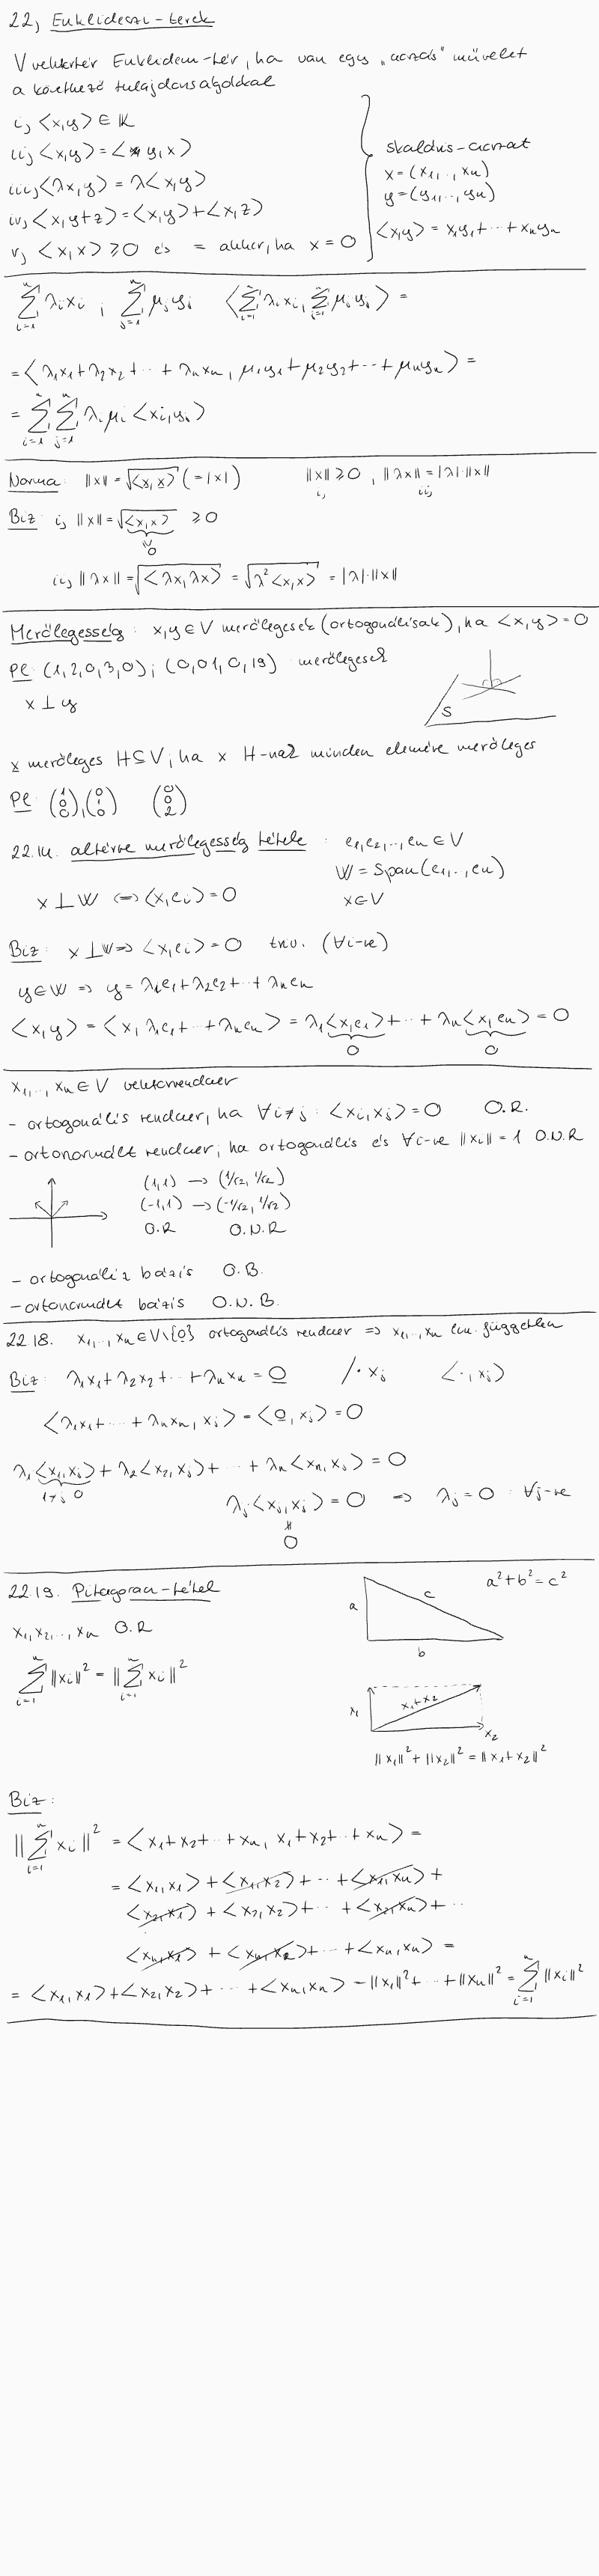 22, Euklideszi-terek
V vektortér Euklideszi-tér, ha van egy „szorzás" művelet
a következő tulajdonságokkal
i, <x,y> ∈ K
ii, <x,y> = <y,x>
iii, <λx,y> = λ<x,y>
iv, <x,y+z> = <x,y> + <x,z>
v, <x,x> ≥ 0 és = akkor, ha x = 0
skaláris-szorzat
x = (x₁,..,xₙ)
y = (y₁,..,yₙ)
<x,y> = x₁y₁ + ··· + xₙyₙ
∑ᵢ₌₁ⁿ λᵢxᵢ , ∑ⱼ₌₁ⁿ μⱼyⱼ <∑ᵢ₌₁ⁿ λᵢxᵢ, ∑ⱼ₌₁ⁿ μⱼyⱼ> =
= <λ₁x₁ + λ₂x₂ + ··· + λₙxₙ, μ₁y₁ + μ₂y₂ + ··· + μₙyₙ> =
= ∑ᵢ₌₁ⁿ ∑ⱼ₌₁ⁿ λᵢμⱼ <xᵢ,yⱼ>
Norma: ||x|| = √<x,x> (= |x|) ||x|| ≥ 0 , ||λx|| = |λ|·||x||
i, ii,
Biz: i, ||x|| = √<x,x> ≥ 0
≥ 0
ii, ||λx|| = √<λx,λx> = √λ²<x,x> = |λ|·||x||
Merőlegesség: x,y ∈ V merőlegesek (ortogonálisak), ha <x,y> = 0
Pl: (1,2,0,3,0); (0,0,1,0,19) merőlegesek
x ⊥ y
S
x merőleges H ⊆ V, ha x H-nak minden elemére merőleges
Pl: (1 0 0), (0 1 0) (0 0 2)
22.14. altérre merőlegesség tétele: e₁,e₂,..,eₙ ∈ V
W = Span(e₁,..,eₙ)
x ⊥ W ⟺ <x,eᵢ> = 0 x ∈ V
Biz: x ⊥ W ⇒ <x,eᵢ> = 0 triv. (∀i-re)
y ∈ W ⇒ y = λ₁e₁ + λ₂e₂ + ·· + λₙeₙ
<x,y> = <x, λ₁e₁ + ·· + λₙeₙ> = λ₁<x,e₁> + ·· + λₙ<x,eₙ> = 0
0 0
x₁,..,xₙ ∈ V vektorrendszer
- ortogonális rendszer, ha ∀i≠j: <xᵢ,xⱼ> = 0 O.R.
- ortonormált rendszer, ha ortogonális és ∀i-re ||xᵢ|| = 1 O.N.R
(1,1) → (1/√2, 1/√2)
(-1,1) → (-1/√2, 1/√2)
O.R O.N.R
- ortogonális bázis O.B.
- ortonormált bázis O.N.B.
22.18. x₁,..,xₙ ∈ V\{0} ortogonális rendszer ⇒ x₁,..,xₙ lin. független
Biz: λ₁x₁ + λ₂x₂ + ··· + λₙxₙ = 0 /· xⱼ <·,xⱼ>
<λ₁x₁ + ··· + λₙxₙ, xⱼ> = <0,xⱼ> = 0
λ₁<x₁,xⱼ> + λ₂<x₂,xⱼ> + ··· + λₙ<xₙ,xⱼ> = 0
1≠j 0
λⱼ<xⱼ,xⱼ> = 0 ⇒ λⱼ = 0 ∀j-re
≠
0
22.19. Pitagorasz-tétel
a c b
a² + b² = c²
x₁,x₂,..,xₙ O.R
∑ᵢ₌₁ⁿ ||xᵢ||² = ||∑ᵢ₌₁ⁿ xᵢ||²
x₁ x₁+x₂ x₂
||x₁||² + ||x₂||² = ||x₁+x₂||²
Biz:
||∑ᵢ₌₁ⁿ xᵢ||² = <x₁+x₂+··+xₙ, x₁+x₂+··+xₙ> =
= <x₁,x₁> + <x₁,x₂> + ·· + <x₁,xₙ> +
<x₂,x₁> + <x₂,x₂> + ·· + <x₂,xₙ> + ··
<xₙ,x₁> + <xₙ,x₂> + ·· + <xₙ,xₙ> =
= <x₁,x₁> + <x₂,x₂> + ··· + <xₙ,xₙ> = ||x₁||² + ·· + ||xₙ||² = ∑ᵢ₌₁ⁿ ||xᵢ||²